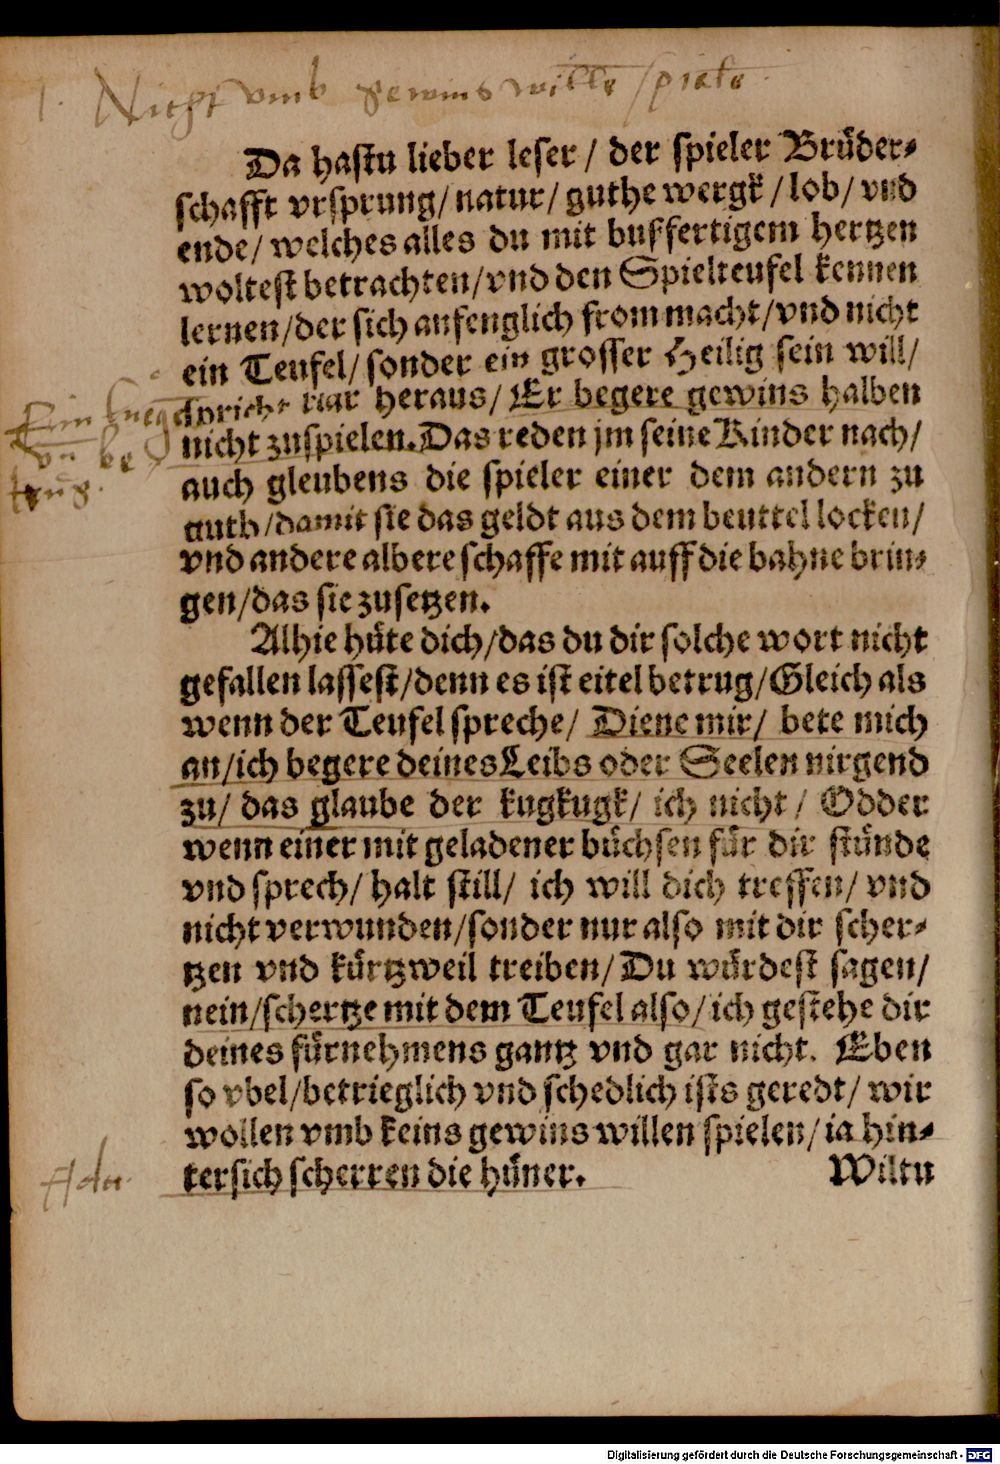 1. Nicht vmb gewins wille spiele
Da hastu lieber leser/ der spieler Brüder-
schafft vrsprung/ natur/ guthe wergk/ lob/ vnd
ende/ welches alles du mit bußfertigem hertzen
woltest betrachten/ vnd den Spielteufel kennen
lernen/ der sich anfenglich from macht/ vnd nicht
ein Teufel/ sonder ein grosser Heilig sein will/
spricht klar heraus/ Er begere gewins halben
nicht zuspielen. Das reden jm seine Kinder nach/
auch gleubens die spieler einer dem andern zu
guth/ damit sie das geldt aus dem beuttel locken/
vnd andere albere schaffe mit auff die bahne brin-
gen/ das sie zusetzen.
Alhie hüte dich/ das du dir solche wort nicht
gefallen lassest/ denn es ist eitel betrug/ Gleich als
wenn der Teufel spreche/ Diene mir/ bete mich
an/ ich begere deines Leibs oder Seelen nirgend
zu/ das glaube der kugkugk/ ich nicht/ Odder
wenn einer mit geladener büchsen für dir stünde
vnd sprech/ halt still/ ich will dich treffen/ vnd
nicht verwunden/ sonder nur also mit dir scher-
tzen vnd kürtzweil treiben/ Du würdest sagen/
nein/ schertze mit dem Teufel also/ ich gestehe dir
deines fürnehmens gantz vnd gar nicht. Eben
so vbel/ betrieglich vnd schedlich ists geredt/ wir
wollen vmb keins gewins willen spielen/ ja hin-
tersich scherren die hüner.
Wiltu
Digitalisierung gefördert durch die Deutsche Forschungsgemeinschaft - DFG